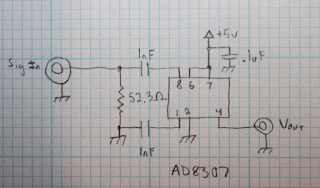 +5v
1nF
.1uF
Sig In
8 6 7
52.3Ω
1 2 4
Vout
1nF
AD8307